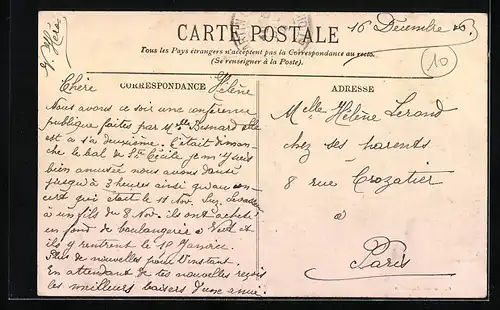 CARTE POSTALE
16 Décembre
Tous les Pays étrangers n'acceptent pas la Correspondance au recto.
(Se renseigner à la Poste).
10
CORRESPONDANCE
Chère Hélène
Nous avons ce soir une conférence
publique faites par Melle Besnard elle
est a sa deuxième. C'était diman-
che le bal de Ste Cécile je m'y suis
bien amusée nous avons dansé
jusqu'à 3 heures ainsi qu'au con-
cert qui était le 11 Nov. Luz.
à un fils du 8 Nov. ils ont acheté
un fond de boulangerie à et
ils y rentrent le 1er Janvier.
Plus de nouvelles pour l'instant.
En attendant de tes nouvelles reçois
les meilleurs baisers d'une amie
ADRESSE
Melle Hélène Lerond
chez ses parents
8 rue Crozatier
à
Paris